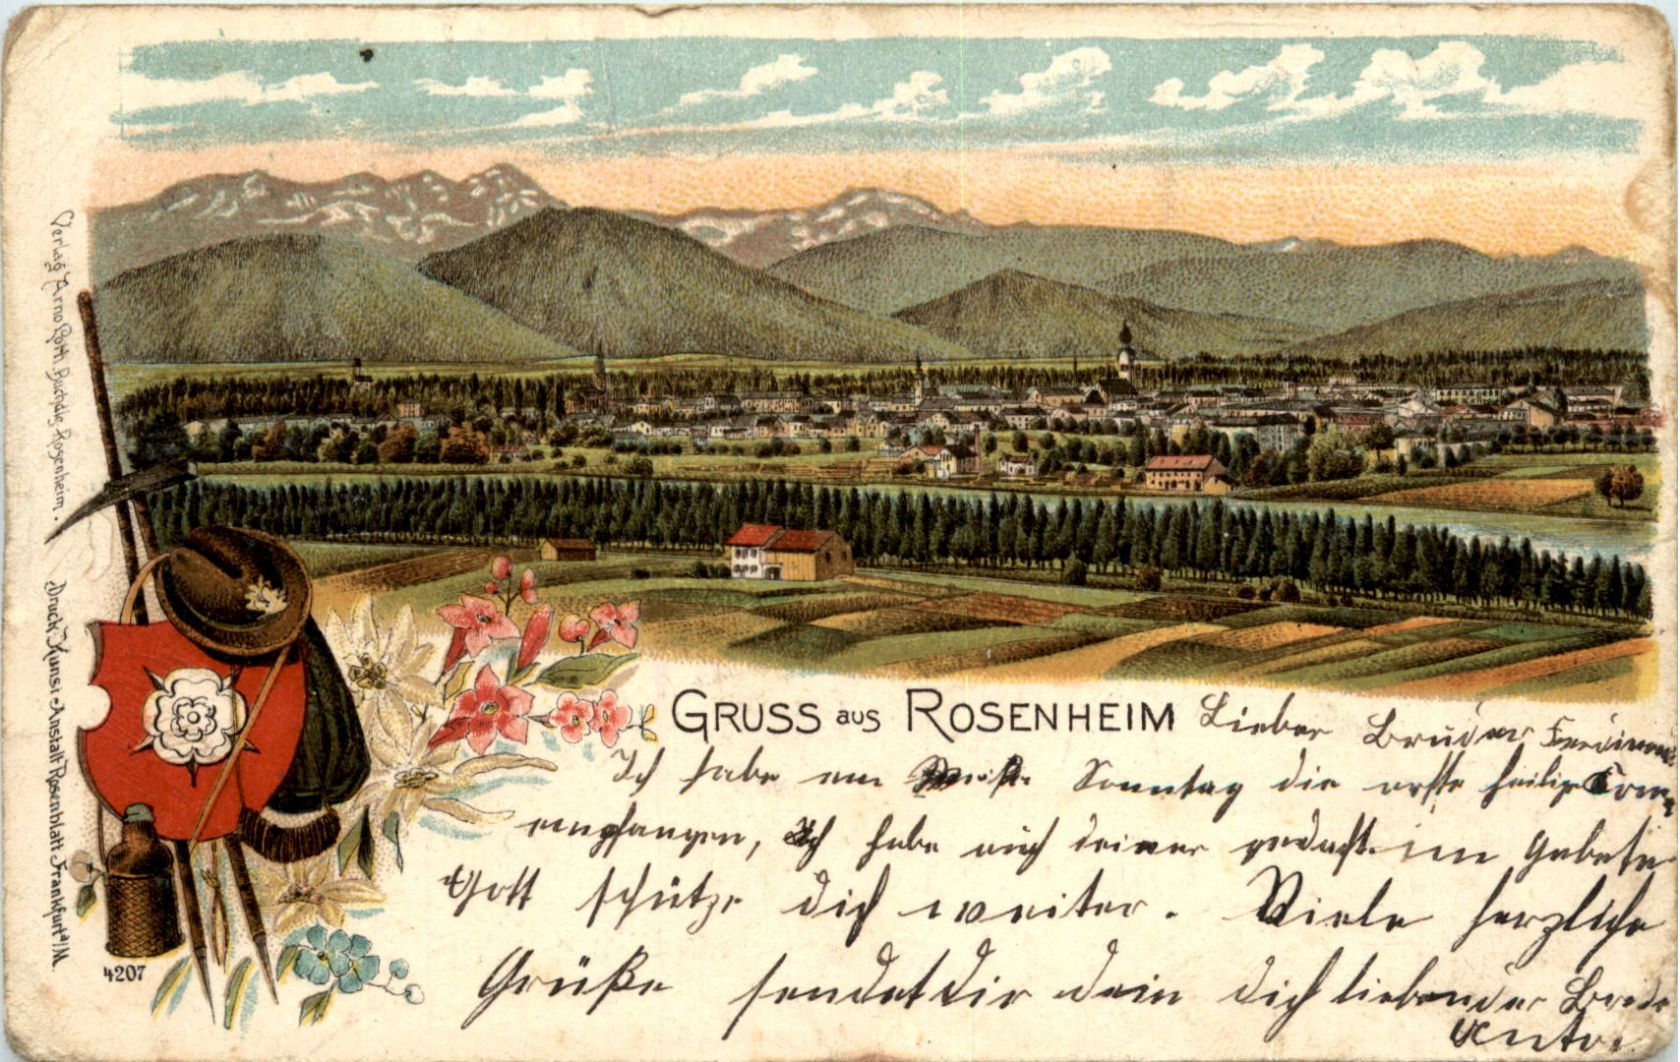 Verlag Arno Roth, Buchdlg. Rosenheim.
Druck Kunst-Anstalt Rosenblatt Frankfurt a/M.
4207
GRUSS aus ROSENHEIM
Lieber Bruder Ferdinand
Ich habe am Sonntag die erste heilige Com
empfangen, Ich habe auch deiner gedacht im Gebete
Gott schütze dich weiter. Viele herzliche
Grüße sendet dir dein dich liebender Brude